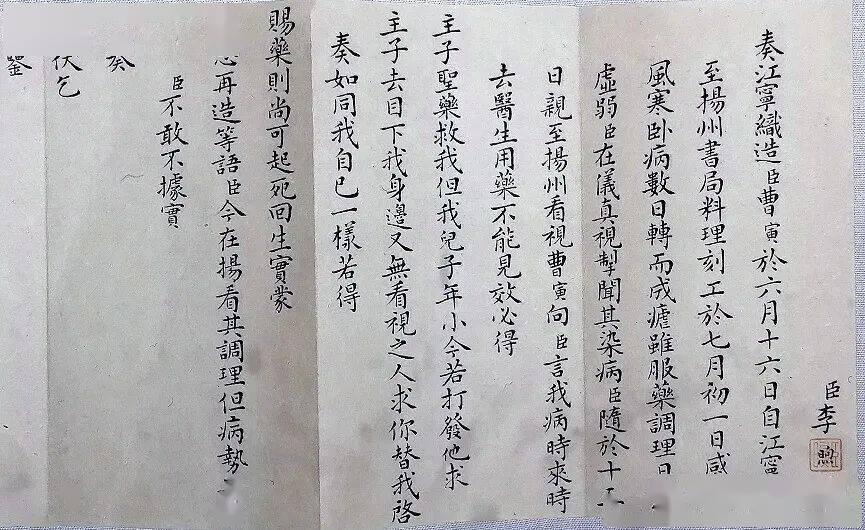 臣李煦
奏江寧織造臣曹寅於六月十六日自江寧
至揚州書局料理刻工於七月初一日感
風寒卧病數日轉而成瘧雖服藥調理日
虛弱臣在儀真視掣聞其染病臣隨於十
日親至揚州看視曹寅向臣言我病時來時
去醫生用藥不能見效必得
主子聖藥救我但我兒子年小今若打發他求
主子去目下我身邊又無看視之人求你替我啓
奏如同我自己一樣若得
賜藥則尚可起死回生實蒙
再造等語臣今在揚看其調理但病勢
臣不敢不據實
伏乞